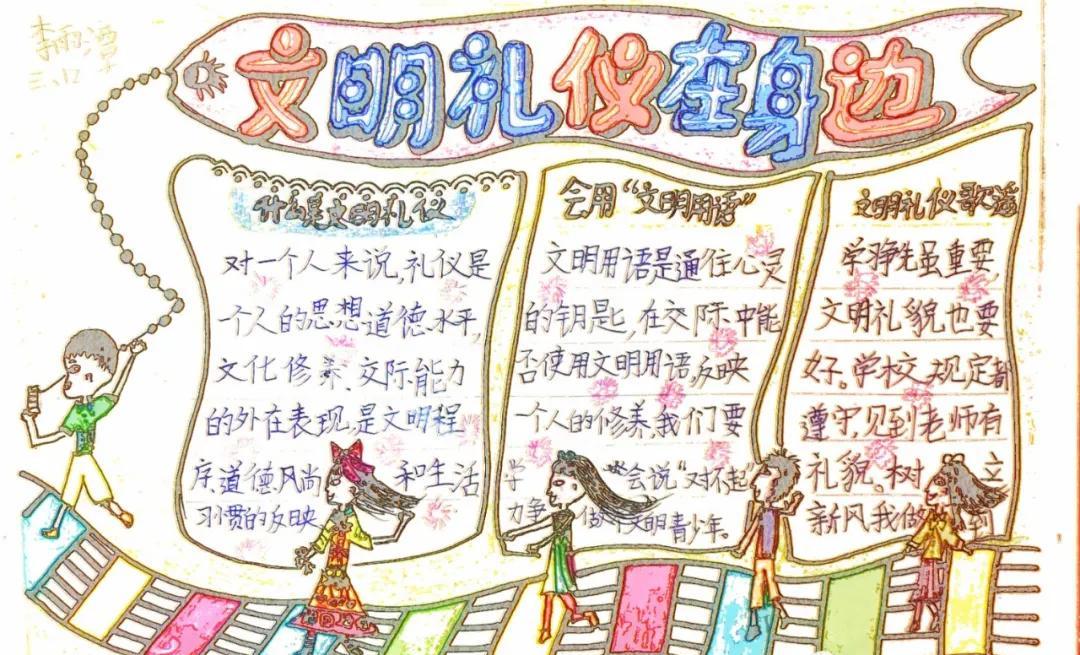 李雨潭
三、口
文明礼仪在身边
什么是文明礼仪
对一个人来说,礼仪是
一个人的思想道德水平,
文化修养、交际能力
的外在表现,是文明程
序、道德风尚和生活
习惯的反映
会用“文明用语”
文明用语是通往心灵
的钥匙,在交际中能
否使用文明用语,反映
一个人的修养,我们要
学会说“对不起”
力争做个文明青少年。
文明礼仪歌谣
学争先虽重要,
文明礼貌也要
好。学校规定都
遵守,见到老师有
礼貌。树立
新风我做到